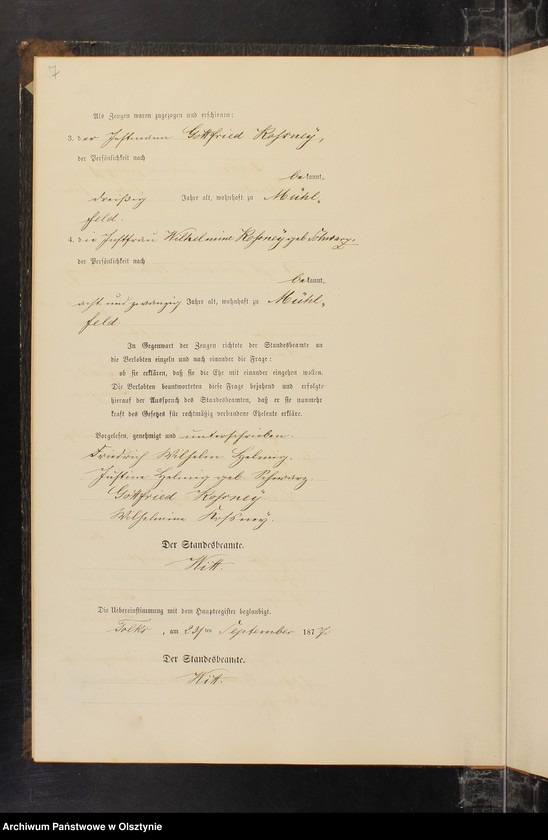 7
Als Zeugen waren zugezogen und erschienen:
3. der Instmann Gottfried Rossney,
der Persönlichkeit nach
bekannt,
dreißig Jahre alt, wohnhaft zu Mühl-
feld.
4. die Instfrau Wilhelmine Rossney geb. Schwarz,
der Persönlichkeit nach
bekannt,
acht und zwanzig Jahre alt, wohnhaft zu Mühl-
feld
In Gegenwart der Zeugen richtete der Standesbeamte an
die Verlobten einzeln und nach einander die Frage:
ob sie erklären, daß sie die Ehe mit einander eingehen wollen.
Die Verlobten beantworteten diese Frage bejahend und erfolgte
hierauf der Ausspruch des Standesbeamten, daß er sie nunmehr
kraft des Gesetzes für rechtmäßig verbundene Eheleute erkläre.
Vorgelesen, genehmigt und unterschrieben.
Friedrich Wilhelm Helmig.
Justine Helmig geb. Schwarz.
Gottfried Rossney
Wilhelmine Rossney.
Der Standesbeamte.
Witt.
Die Uebereinstimmung mit dem Hauptregister beglaubigt.
, am 23ten September 1877.
Der Standesbeamte.
Witt.
Archiwum Państwowe w Olsztynie